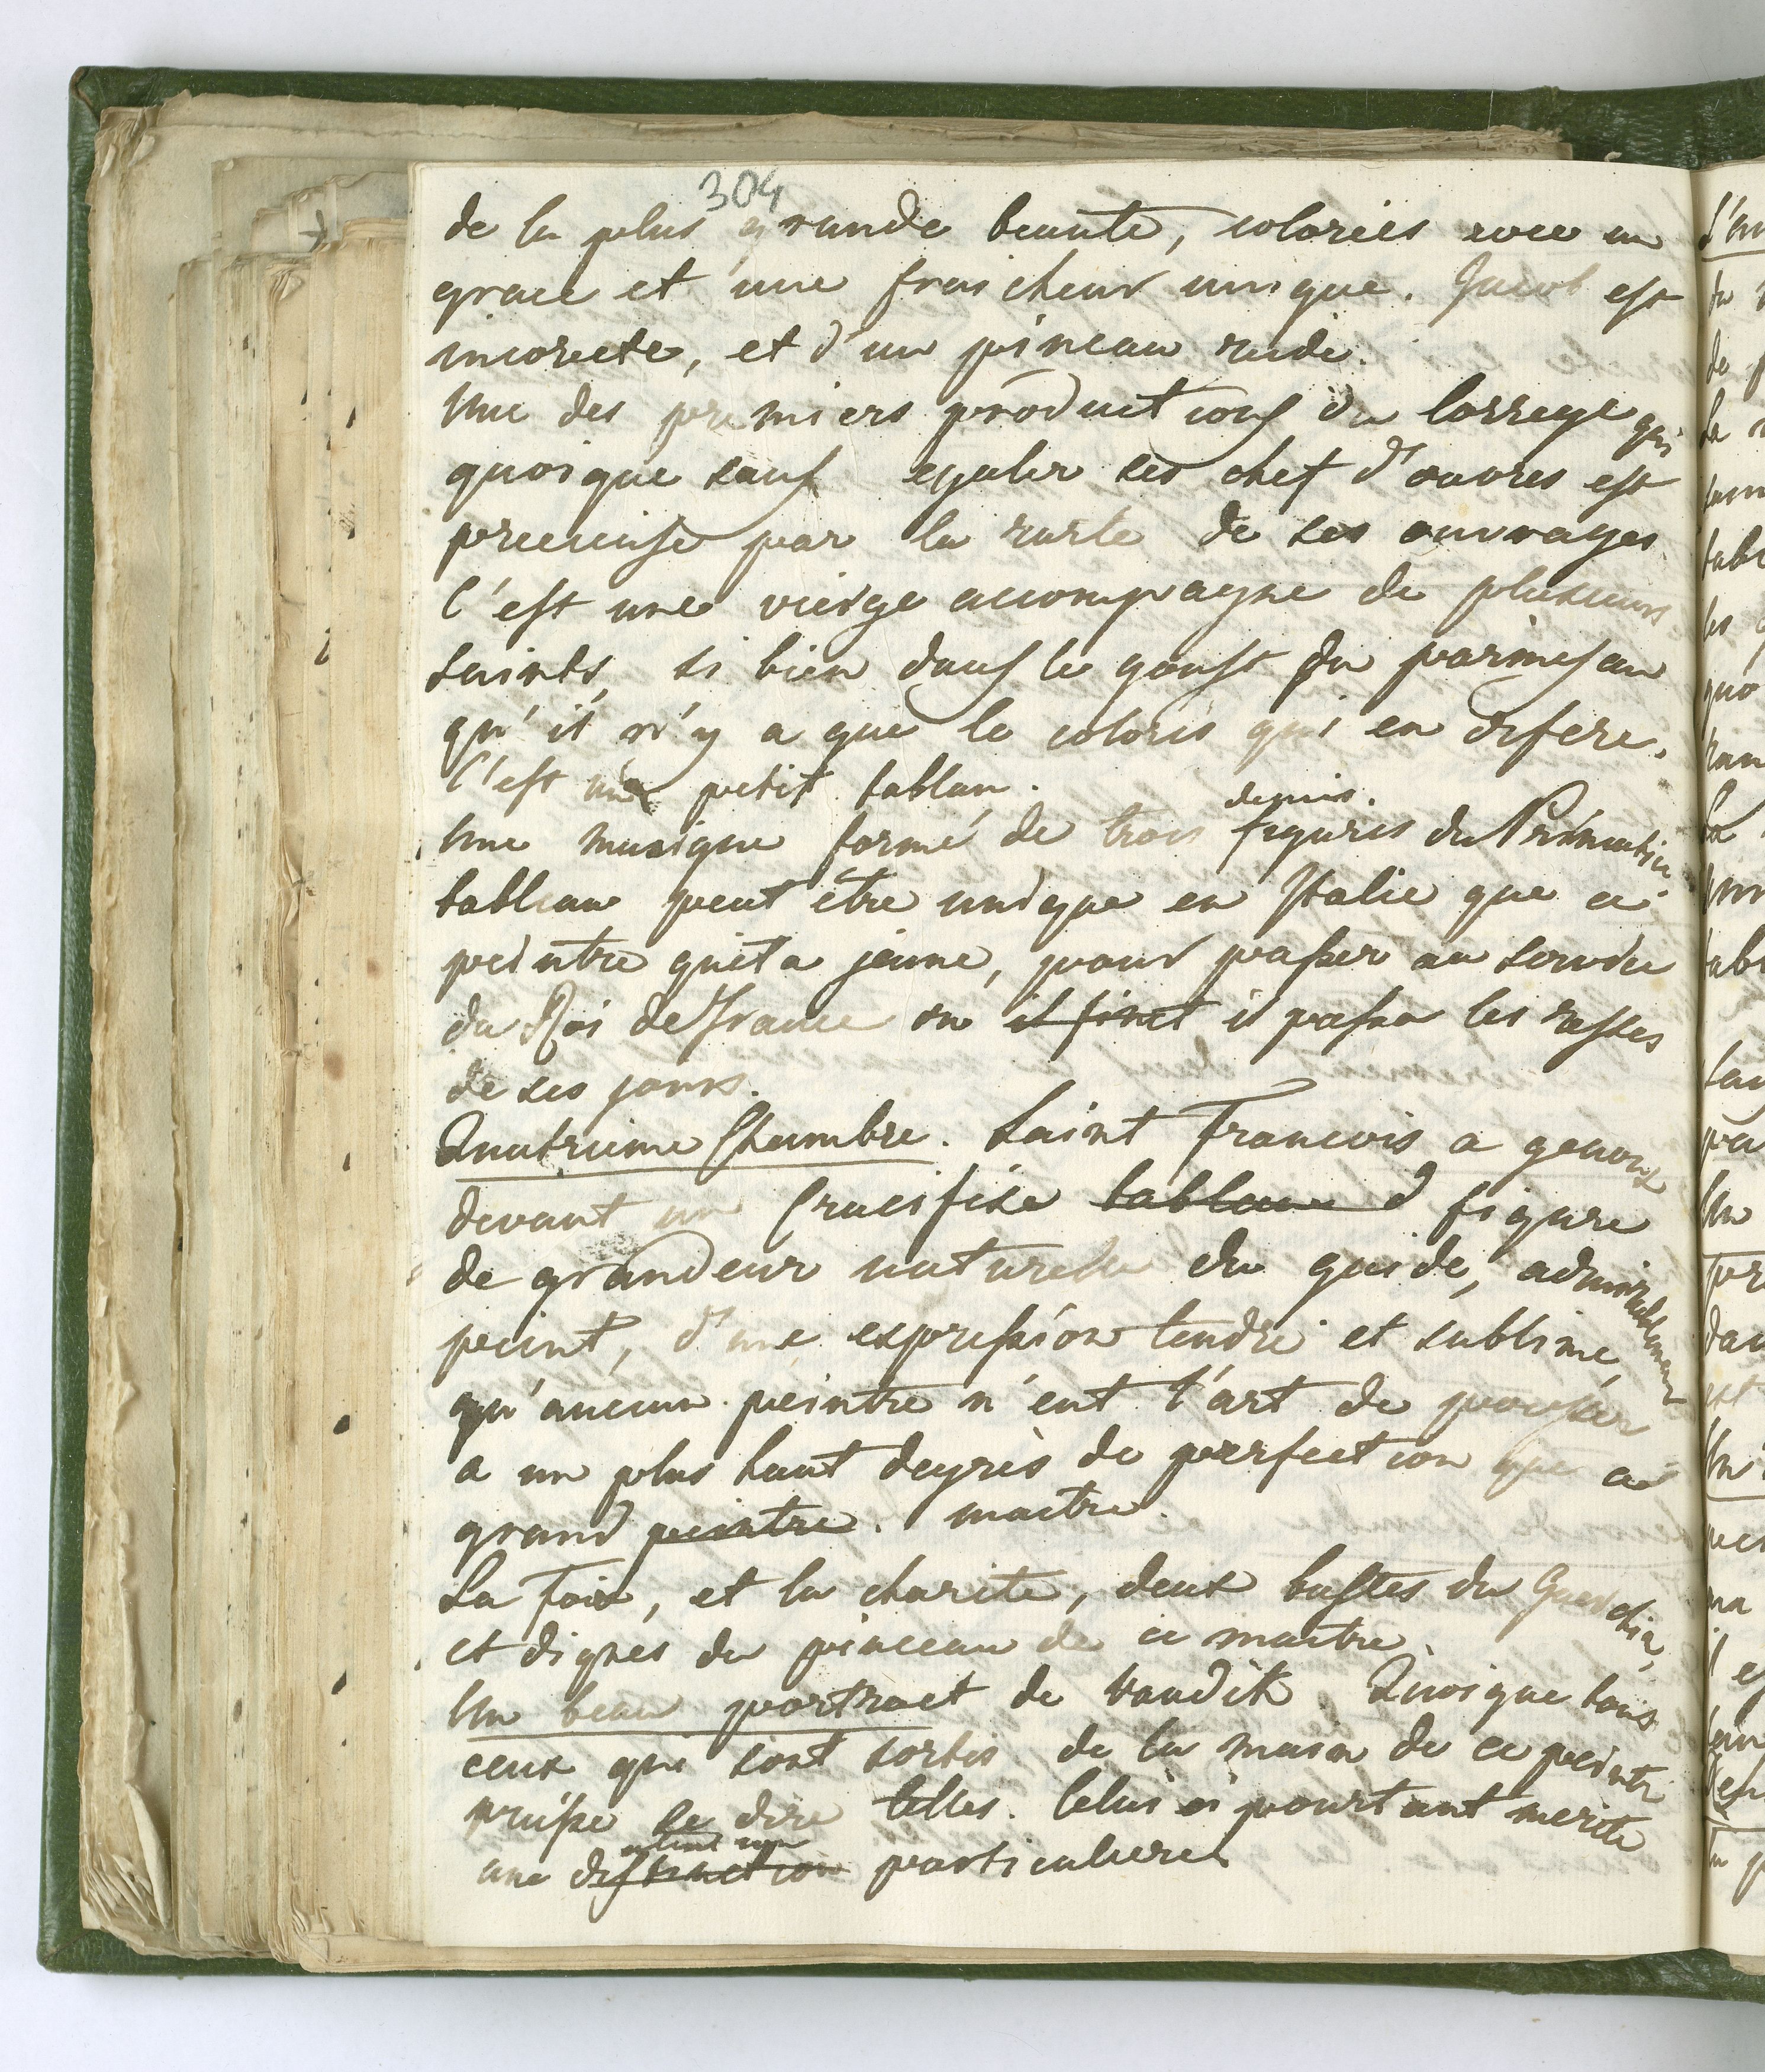 304
de la plus grande beauté, coloriés avec un
grace et une fraicheur unique. Jacob est
incorecte, et d'un pinceau rude.
Une des premiers productions du Correge qui
quoique sans egaler ses chef d'ouvres est
precieuse par la rarte de ses ouvrages
C'est une vierge accompagne de plusieurs
saints, si bien dans le goust du parmesan
qu'il n'y a que le coloris qui en difere.
C'est un petit tablau.
demis.
Une musique formé de trois figures du Primatice
tableau peut etre unique en Italie que ce
peintre quita jeune, pour passer au service
du Roi de France ou il finit il passa les restes
de ses jours.
Quatrieme Chambre. Saint Francois a genoux
devant un Crucifixe tableau d figure
de grandeur naturelle du guide, admirablement
peint, d'une expression tendre et sublime,
qu'aucun peintre n'eut l'art de pousser
a un plus haut degrès de perfection que ce
grand peintre. maitre.
La Foix, et la charite, deux bustes du Guerchin,
et dignes du pinceau de ce maitre.
Un beau portract de Vandik. Quoique tous
ceux qui sont sortis de la main de ce peintre
puisse se dire telles. Celui ci pourtant merite
une distinction particuliere